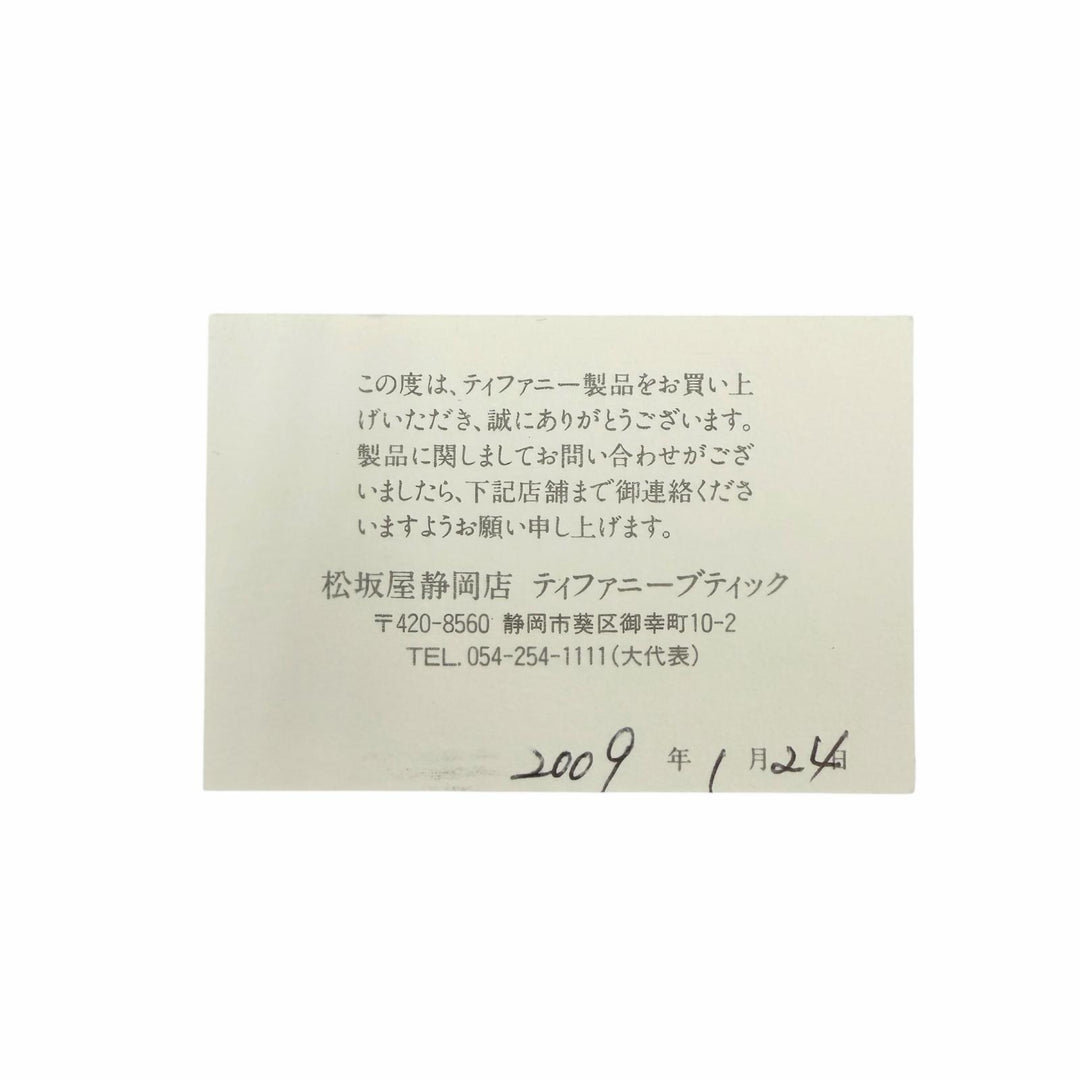 この度は、ティファニー製品をお買い上
げいただき、誠にありがとうございます。
製品に関しましてお問い合わせがござ
いましたら、下記店舗まで御連絡くださ
いますようお願い申し上げます。
松坂屋静岡店 ティファニーブティック
〒420-8560 静岡市葵区御幸町10-2
TEL. 054-254-1111(大代表)
2009 年 1 月 24 日